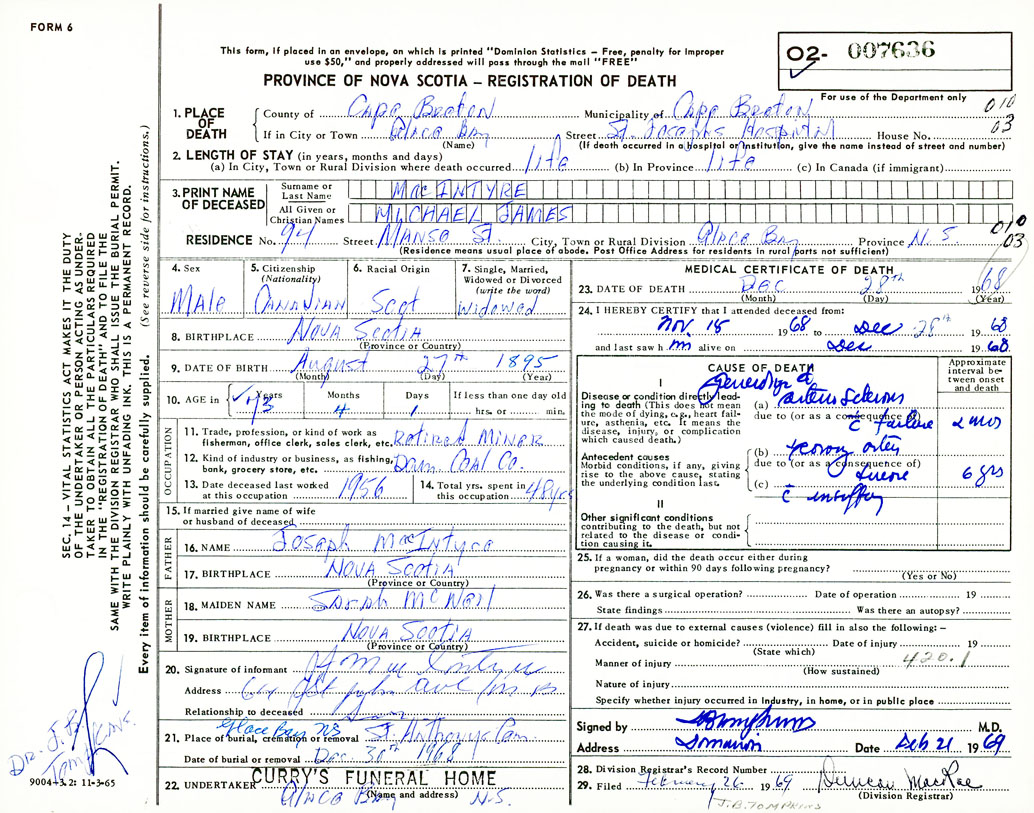 FORM 6
This form, if placed in an envelope, on which is printed "Dominion Statistics – Free, penalty for improper
use $50," and properly addressed will pass through the mail "FREE"
PROVINCE OF NOVA SCOTIA – REGISTRATION OF DEATH
O2- 007636
For use of the Department only
010
03
1. PLACE OF DEATH
County of Cape Breton Municipality of Cape Breton
If in City or Town Glace Bay Street St. Josephs Hospital House No.
(Name) (If death occurred in a hospital or institution, give the name instead of street and number)
2. LENGTH OF STAY (in years, months and days)
(a) In City, Town or Rural Division where death occurred life (b) In Province life (c) In Canada (if immigrant)
3. PRINT NAME OF DECEASED
Surname or Last Name MacINTYRE
All Given or Christian Names MICHAEL JAMES
010
03
RESIDENCE No. 94 Street Mansa St. City, Town or Rural Division Glace Bay Province N.S.
(Residence means usual place of abode. Post Office Address for residents in rural parts not sufficient)
4. Sex Male
5. Citizenship (Nationality) Canadian
6. Racial Origin Scot
7. Single, Married, Widowed or Divorced (write the word) Widowed
8. BIRTHPLACE Nova Scotia
(Province or Country)
9. DATE OF BIRTH August 27th 1895
(Month) (Day) (Year)
10. AGE in Years 73 Months 4 Days 1 If less than one day old hrs. or min.
OCCUPATION
11. Trade, profession, or kind of work as fisherman, office clerk, sales clerk, etc. Retired Miner
12. Kind of industry or business, as fishing, bank, grocery store, etc. Dom. Coal Co.
13. Date deceased last worked at this occupation 1956
14. Total yrs. spent in this occupation 48 yrs
15. If married give name of wife or husband of deceased
FATHER
16. NAME Joseph MacIntyre
17. BIRTHPLACE Nova Scotia
(Province or Country)
MOTHER
18. MAIDEN NAME Sarah McNeil
19. BIRTHPLACE Nova Scotia
(Province or Country)
20. Signature of informant
Address
Relationship to deceased
21. Place of burial, cremation or removal Glace Bay NS St. Anthony Cem.
Date of burial or removal Dec. 30th 1968
22. UNDERTAKER CURRY'S FUNERAL HOME
Glace Bay N.S.
(Name and address)
MEDICAL CERTIFICATE OF DEATH
23. DATE OF DEATH Dec 28th 1968
(Month) (Day) (Year)
24. I HEREBY CERTIFY that I attended deceased from:
Nov. 15 1968 to Dec 28th 1968
and last saw h m alive on Dec 1968
CAUSE OF DEATH
Approximate interval between onset and death
I
Disease or condition directly leading to death (This does not mean the mode of dying, e.g., heart failure, asthenia, etc. It means the disease, injury, or complication which caused death.)
(a)
due to (or as a consequence of) c̄ failure 2 mos
Antecedent causes
Morbid conditions, if any, giving rise to the above cause, stating the underlying condition last.
(b)
due to (or as a consequence of)
(c) 6 yrs
II
Other significant conditions contributing to the death, but not related to the disease or condition causing it.
25. If a woman, did the death occur either during pregnancy or within 90 days following pregnancy?
(Yes or No)
26. Was there a surgical operation? Date of operation 19
State findings Was there an autopsy?
27. If death was due to external causes (violence) fill in also the following: –
Accident, suicide or homicide? Date of injury 19
(State which)
420.1
Manner of injury
(How sustained)
Nature of injury
Specify whether injury occurred in Industry, in home, or in public place
Signed by M.D.
Address Dominion Date Feb 21 1969
28. Division Registrar's Record Number
29. Filed February 26 1969 Duncan MacRae
(Division Registrar)
J.B. TOMPKINS
SEC. 14 – VITAL STATISTICS ACT MAKES IT THE DUTY
OF THE UNDERTAKER OR PERSON ACTING AS UNDER-
TAKER TO OBTAIN ALL THE PARTICULARS REQUIRED
IN THE "REGISTRATION OF DEATH" AND TO FILE THE
SAME WITH THE DIVISION REGISTRAR WHO SHALL ISSUE THE BURIAL PERMIT.
WRITE PLAINLY WITH UNFADING INK. THIS IS A PERMANENT RECORD.
Every item of information should be carefully supplied. (See reverse side for instructions.)
DR. J.B.
TOMPKINS.
9004-3.2: 11-3-65